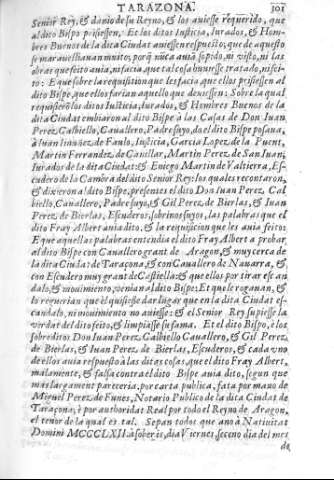 TARAZONA. 301
Senior Rey, & danio de su Reyno, & los auiesse requerido, que
al dito Bispo prisiessen, Et los ditos Iusticia, Iurados, & Hom-
bres Buenos de la dita Ciudat auiessen respuesto, que de aquesto
se marauellauan muito, porq̃ nũca auiã sopido, ni visto, ni las
obras que feito auia, nifacia, que tal cosa ouiesse tratado, ni fei-
to: Et que sobre la requisition que les facia, que ellos prisiessen al
dito Bispe, que ellos farian aquello que deuiessen: Sobre la qual
requisieron los ditos Iusticia, Iurados, & Hombres Buenos de la
dita Ciudat embiaron al dito Bispe à las Casas de Don Iuan
Perez Caluiello, Cauallero, Padre suyo, do el dito Bispe posaua,
à Iuan de Fanlo, Iusticia, Garcia Lopez de la Puent,
Martin Ferrandez, de Casillar, Martin Perez, de San Iuan,
Iurados de la dita Ciudat: & Eniego Martin de Valtierra, Es-
cudero de lo Cambra del dito Senior Rey: los quales recontaron,
& dixieron al dito Bispe, presentes el dito Don Iuan Perez, Cal
biello, Cauallero, Padre suyo, & Gil Perez de Bierlas, & Iuan
Perez de Bierlas, Escuderos, sobrinos suyos, las palabras que el
dito Fray Albert auia dito: & la requisicion que les auia feito:
E que aquellas palabras entendia el dito Fray Albert a probar
al dito Bispe con Cauallero grant de Aragon, & muy cerca de
la dita Ciudat de Taraçona, & con Cauallero de Nauarra, &,
con Escudero muy grant de Castiella: & que ellos por tirar escan
dalo, & mouimiento, venian al dito Bispe: Et que le rogauan, &
lo requerian que el quisiesse dar lugar que en la dita Ciudat es-
candalo, ni mouimiento no auiesse: & el Senior Rey supiesse la
verdat del dito feito, & limpiasse su fama. Et el dito Bispo, è los
sobreditos Don Iuan Perez Caluiello Cauallero, & Gil Perez
de Bierlas, & Iuan Perez de Bierlas, Escuderos, & cada vno
de ellos auia respuesto à las ditas cosas, que el dito Fray Albert,
malament, & falsa contra el dito Bispe auia dito, segun que
mas largament pareceria, por carta publica, fata por mano de
Miguel Perez de Funes, Notario Publico de la dita Ciudat de
Taraçona, è por authoridat Real por todo el Reyno de Aragon,
el tenor de la qual es tal. Sepan todos que ano à Natiuitat
Domini MCCCLXII. à sober es, dia Viernes, seceno dia del mes
de